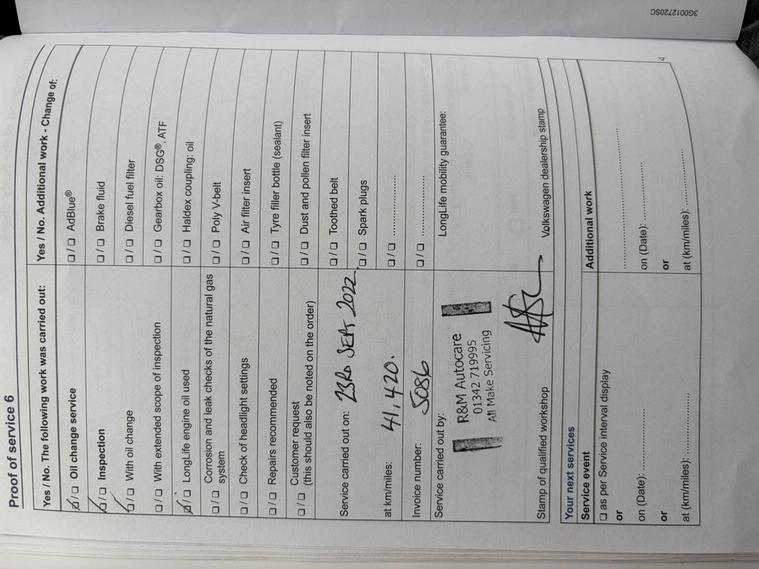 3G0012720SC
Proof of service 6
Yes / No. The following work was carried out:
☑ / ☐ Oil change service
☑ / ☐ Inspection
☑ / ☐ With oil change
☐ / ☐ With extended scope of inspection
☑ / ☐ LongLife engine oil used
☐ / ☐ Corrosion and leak checks of the natural gas
system
☐ / ☐ Check of headlight settings
☐ / ☐ Repairs recommended
☐ / ☐ Customer request
(this should also be noted on the order)
Service carried out on: 23RD SEPT 2022.
at km/miles: 41,420.
Invoice number: 5086
Service carried out by:
R&M Autocare
01342 719995
All Make Servicing
Stamp of qualified workshop
Yes / No. Additional work - Change of:
☐ / ☐ AdBlue®
☐ / ☐ Brake fluid
☐ / ☐ Diesel fuel filter
☐ / ☐ Gearbox oil: DSG®, ATF
☐ / ☐ Haldex coupling: oil
☐ / ☐ Poly V-belt
☐ / ☐ Air filter insert
☐ / ☐ Tyre filler bottle (sealant)
☐ / ☐ Dust and pollen filter insert
☐ / ☐ Toothed belt
☐ / ☐ Spark plugs
☐ / ☐ ....................
☐ / ☐ ....................
LongLife mobility guarantee:
Volkswagen dealership stamp
Your next services
Service event
☐ as per Service interval display
or
on (Date): ....................
or
at (km/miles): ....................
Additional work
..............................
on (Date): ....................
or
at (km/miles): ....................